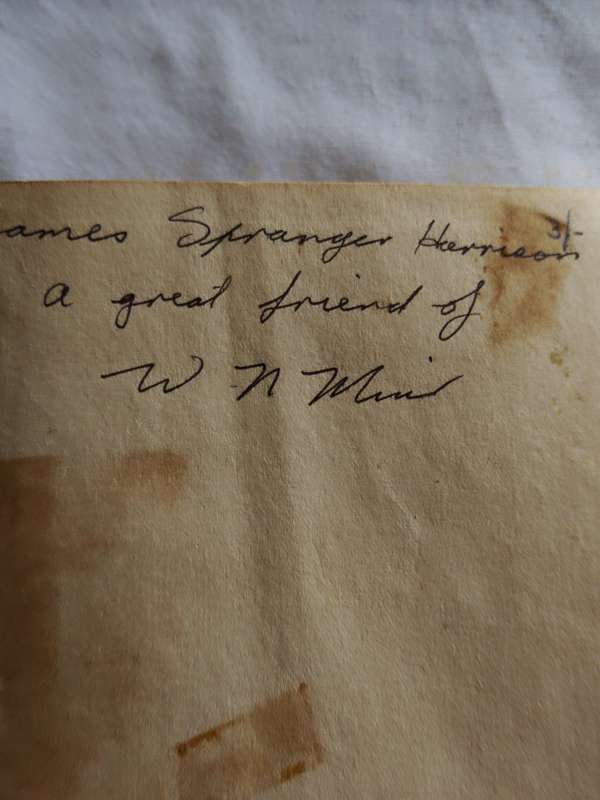 ames Spranger Harrison
3/-
a great friend of
W N Muir